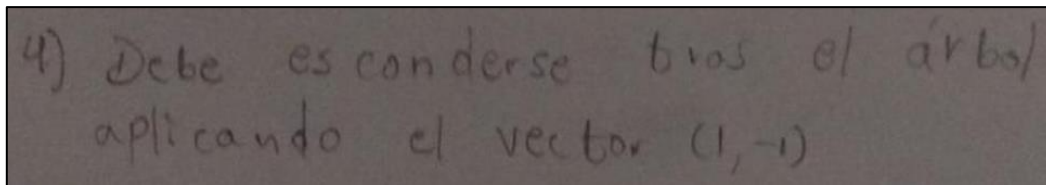 4) Debe esconderse tras el árbol
aplicando el vector (1,-1)